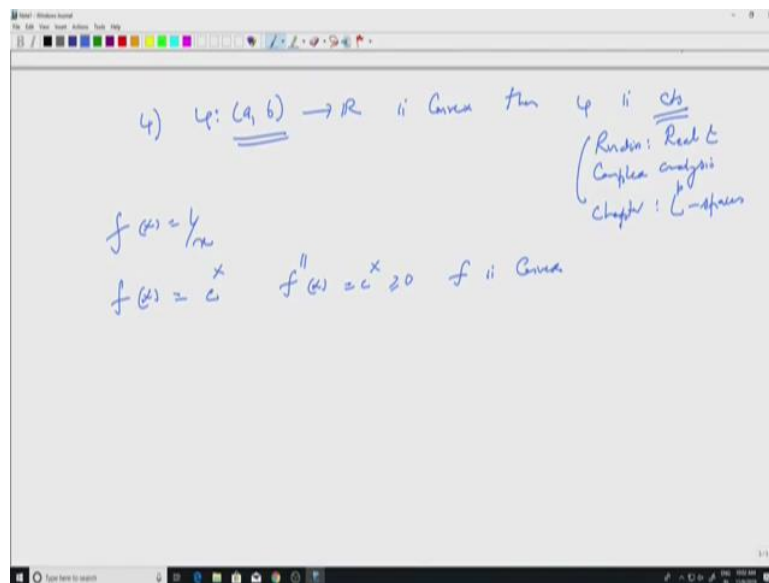 Note1 - Windows Journal
File Edit View Insert Actions Tools Help
4) φ: (a, b) → R is Convex then φ is cts
Rudin: Real &
Complex analysis
Chapter: L^p-spaces
f(x) = 1/x
f(x) = e^x f''(x) = e^x ≥ 0 f is Convex
1/1
Type here to search
ENG